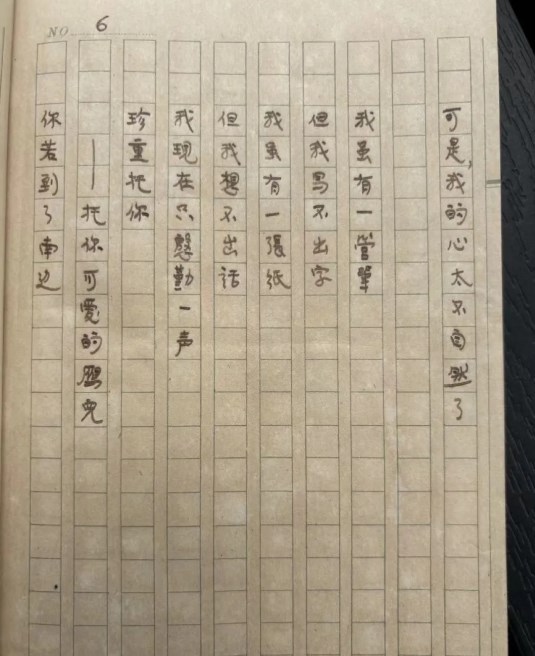 NO 6
可是,我的心太不自然了
我虽有一管筆
但我写不出字
我虽有一張紙
但我想不出話
我現在只慇勤一声
珍重托你
——托你可愛的鴈兒
你若到了南边